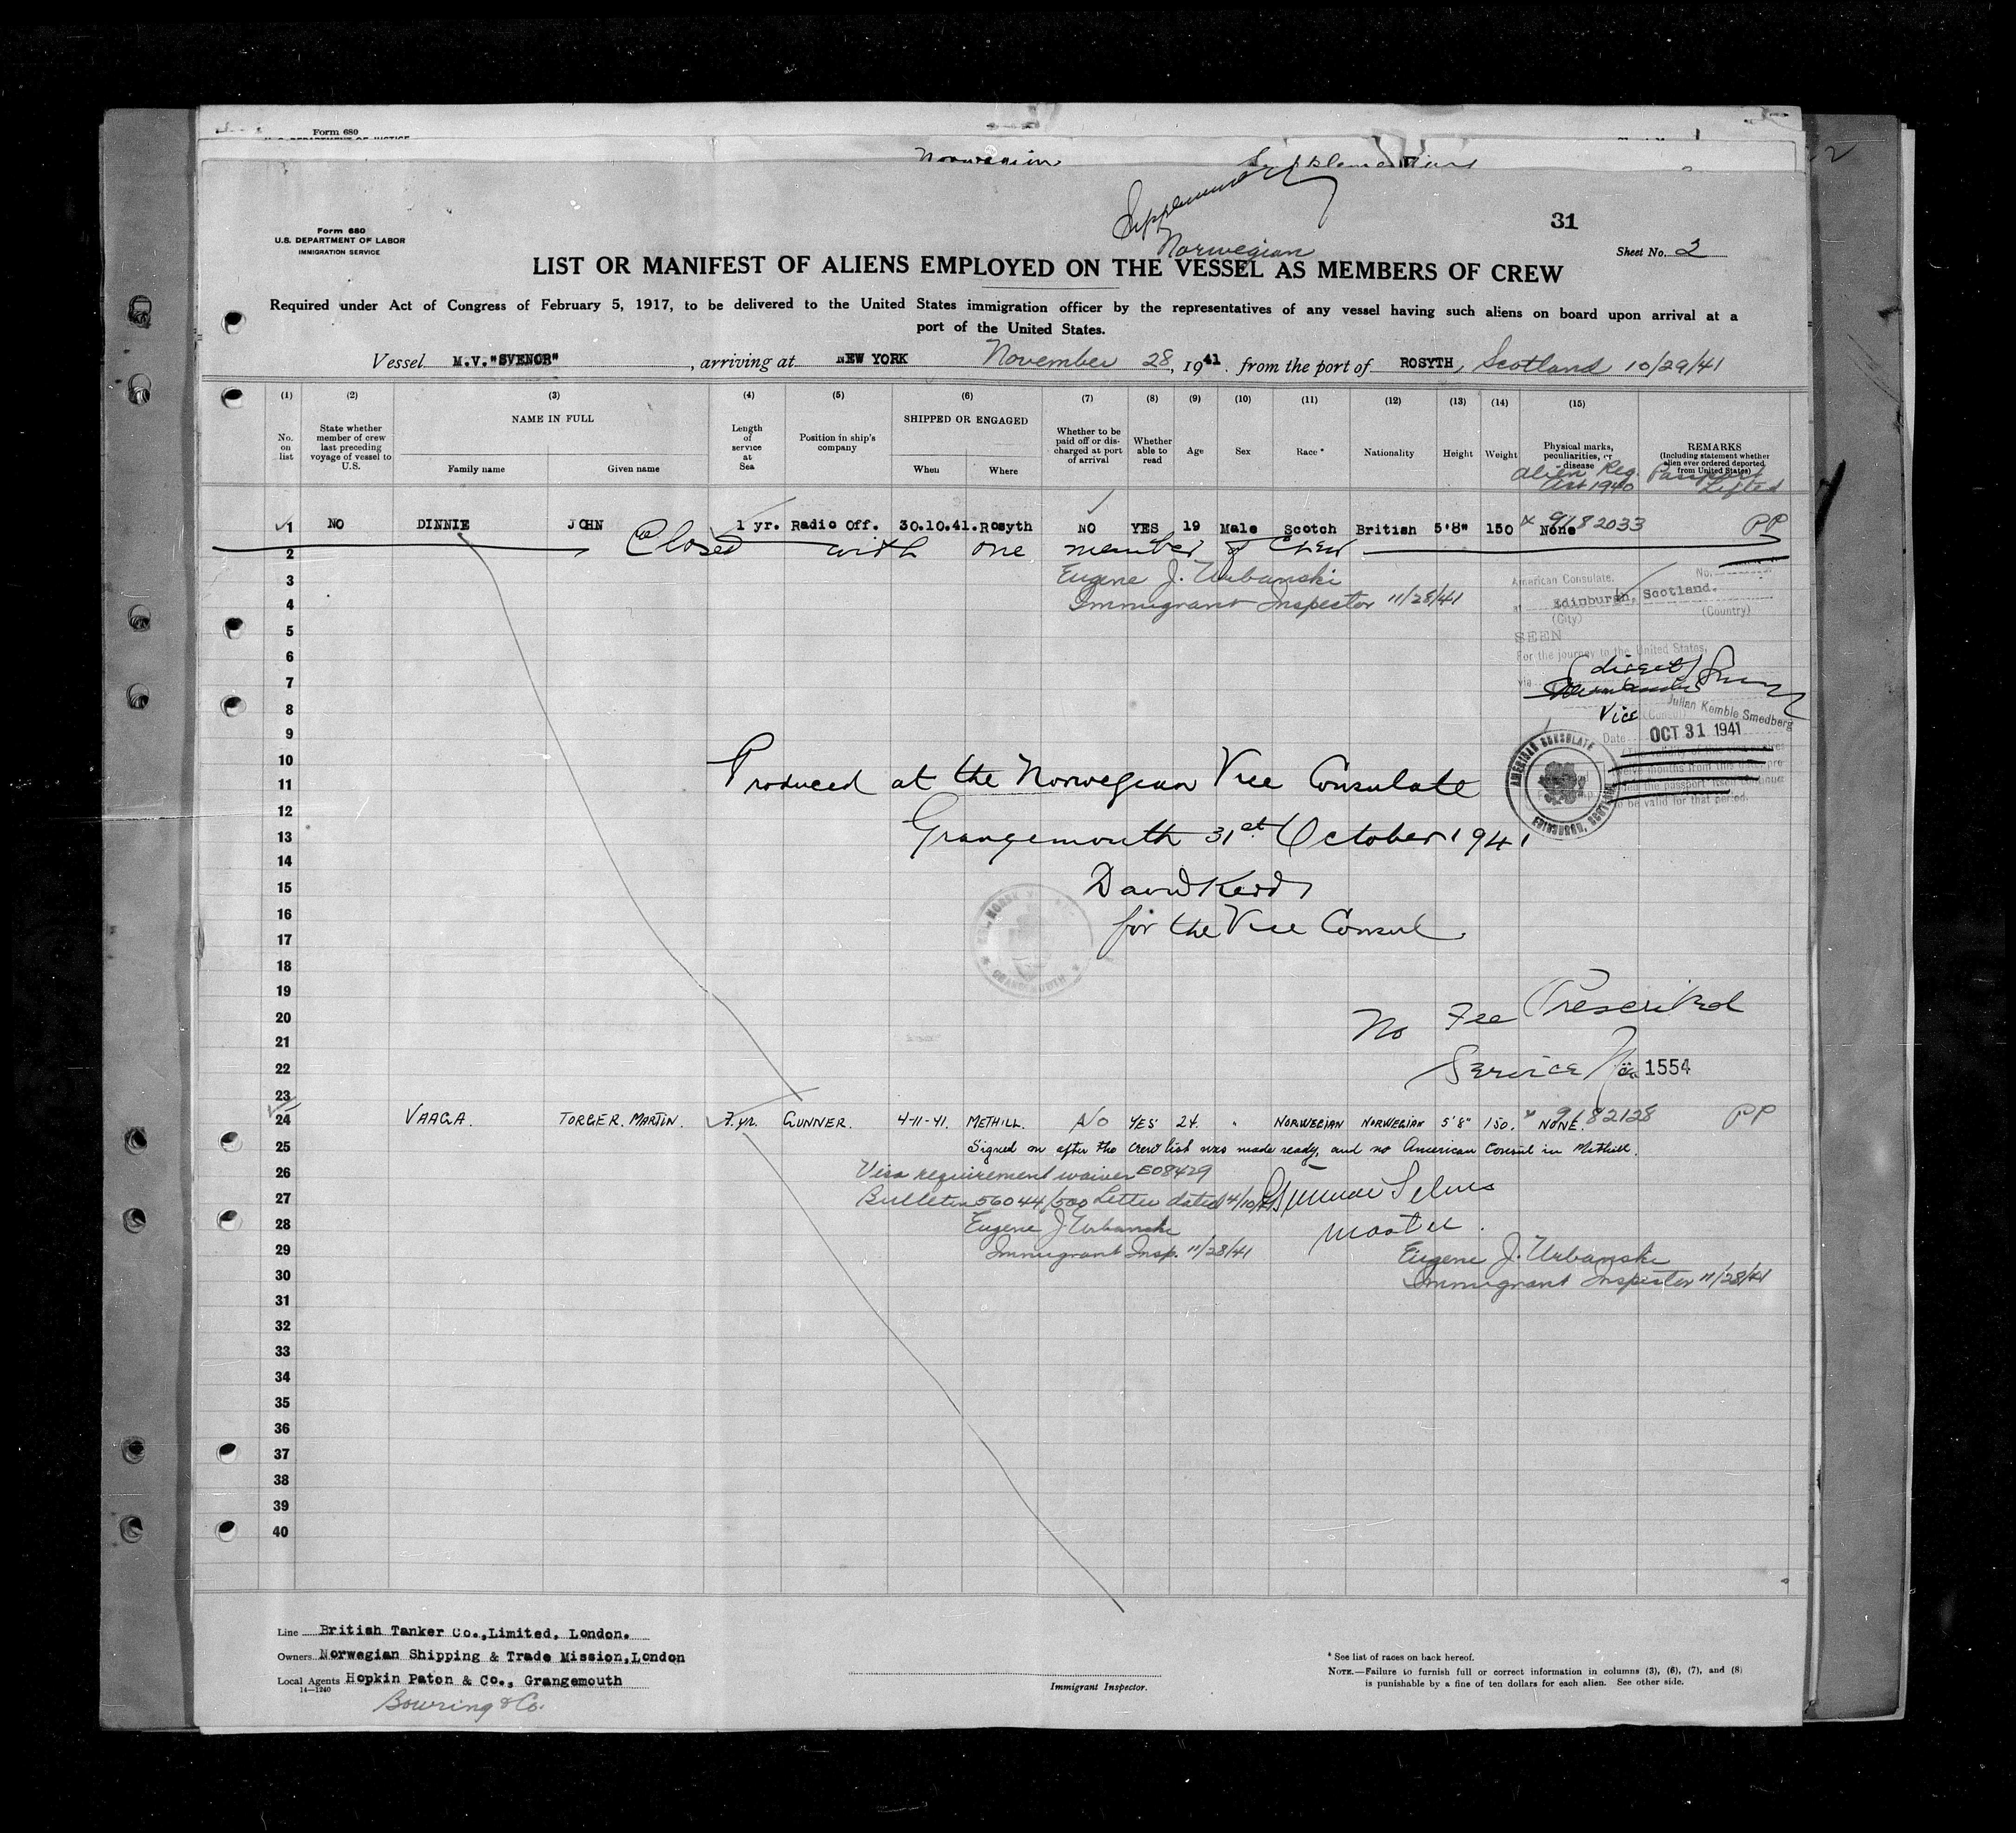 Form 680
Norwegian Supplementary
Supplementary
31
Form 680
U.S. DEPARTMENT OF LABOR
IMMIGRATION SERVICE
Norwegian
Sheet No. 2
LIST OR MANIFEST OF ALIENS EMPLOYED ON THE VESSEL AS MEMBERS OF CREW
Required under Act of Congress of February 5, 1917, to be delivered to the United States immigration officer by the representatives of any vessel having such aliens on board upon arrival at a
port of the United States.
Vessel M.V."SVENOR", arriving at NEW YORK November 28, 1941. from the port of ROSYTH, Scotland 10/29/41
(1) (2) (3) (4) (5) (6) (7) (8) (9) (10) (11) (12) (13) (14) (15)
No. on list
State whether member of crew last preceding voyage of vessel to U.S.
NAME IN FULL
Family name Given name
Length of service at Sea
Position in ship's company
SHIPPED OR ENGAGED
When Where
Whether to be paid off or discharged at port of arrival
Whether able to read
Age Sex Race * Nationality Height Weight
Physical marks, peculiarities, or disease
Alien Reg. Act 1940
REMARKS
(Including statement whether alien ever ordered deported from United States)
Passport Lifted
1 NO DINNIE JOHN 1 yr. Radio Off. 30.10.41. Rosyth NO YES 19 Male Scotch British 5'8" 150 x None 9182033 PP
2 Closed with one member of Crew
3 Eugene J. Urbanski
4 Immigrant Inspector 11/28/41
American Consulate, No.
at Edinburgh, Scotland.
(City) (Country)
5
SEEN
6
For the journey to the United States,
via (direct)
7
8
Vice Consul
Julian Kemble Smedberg
9
Date OCT 31 1941
AMERICAN CONSULATE
EDINBURGH, SCOTLAND
10
11
Produced at the Norwegian Vice Consulate
12
13
Grangemouth 31st October 1941
14
15
David Kerr
16
for the Vice Consul
17
GRANGEMOUTH
18
19
20
No Fee Prescribed
21
22
Service No. 1554
23
24 VAAGA. TORGER. MARTIN. 7. yr. GUNNER. 4-11-41. METHILL. No YES 24. " NORWEGIAN NORWEGIAN 5'8" 150. x NONE. 9182128 PP
25 Signed on after the crew list was made ready, and no American Consul in Methill.
26 Visa requirement waiver E08429
27 Bulletin 56044/500 Letter dated 4/10/41
28 Eugene J. Urbanski
Master.
29 Immigrant Insp. 11/28/41
Eugene J. Urbanski
30 Immigrant Inspector 11/28/41
31
32
33
34
35
36
37
38
39
40
Line British Tanker Co.,Limited, London.
Owners Norwegian Shipping & Trade Mission,London
Local Agents Hopkin Paton & Co., Grangemouth
14—1240
Bowring & Co.
Immigrant Inspector.
* See list of races on back hereof.
NOTE.—Failure to furnish full or correct information in columns (3), (6), (7), and (8)
is punishable by a fine of ten dollars for each alien. See other side.